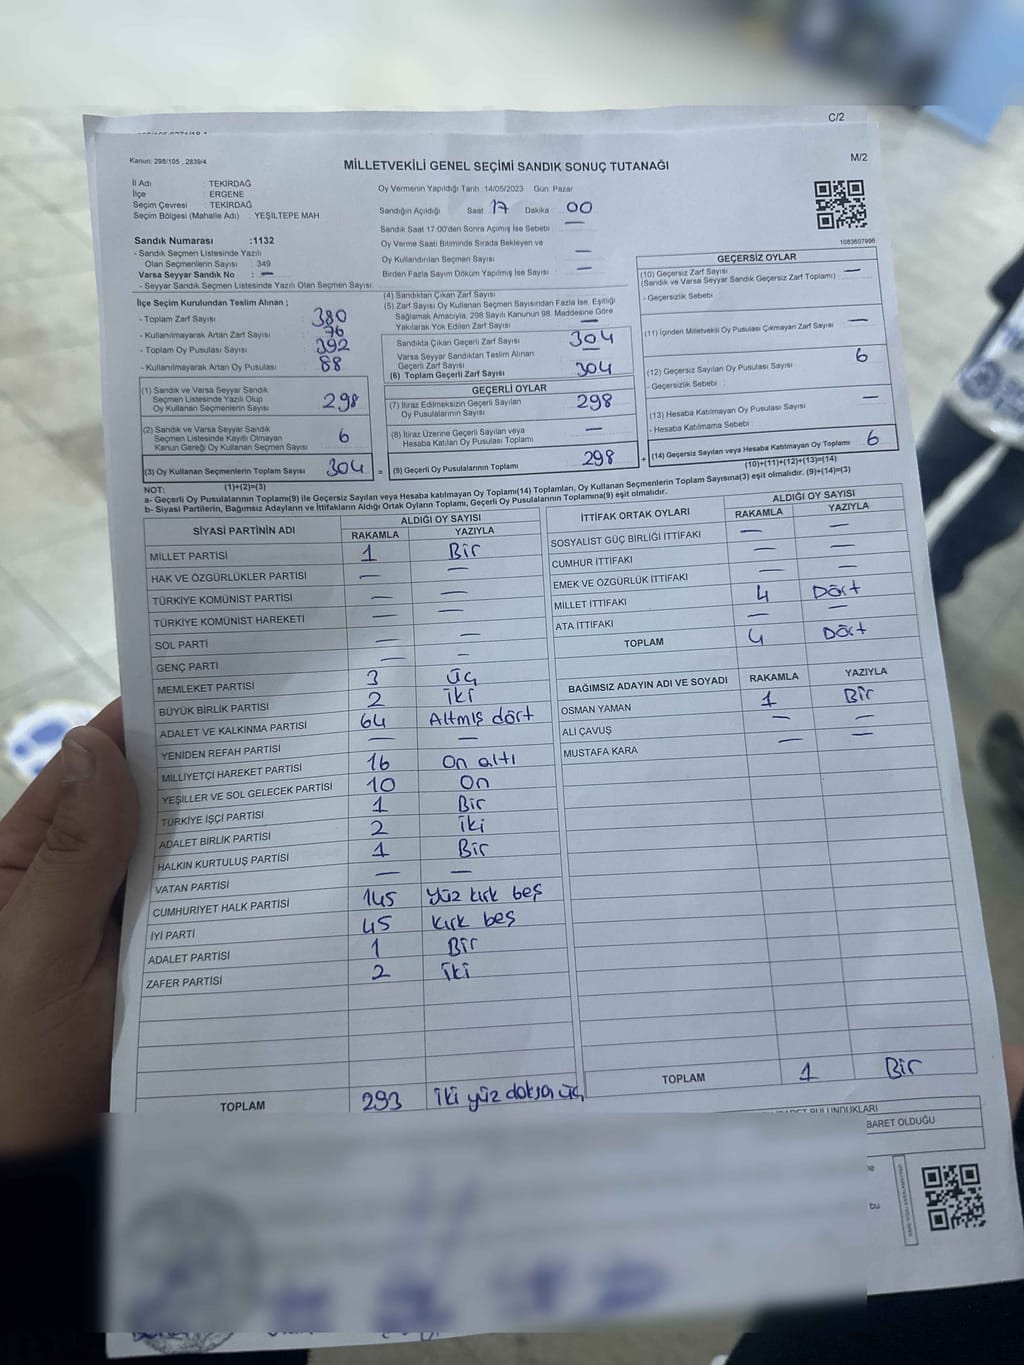 C/2
Kanun: 298/105 , 2839/4
M/2
MİLLETVEKİLİ GENEL SEÇİMİ SANDIK SONUÇ TUTANAĞI
İl Adı : TEKİRDAĞ
İlçe : ERGENE
Seçim Çevresi : TEKİRDAĞ
Seçim Bölgesi (Mahalle Adı) : YEŞİLTEPE MAH
Sandık Numarası :1132
- Sandık Seçmen Listesinde Yazılı
Olan Seçmenlerin Sayısı 349
Varsa Seyyar Sandık No : —
- Seyyar Sandık Seçmen Listesinde Yazılı Olan Seçmen Sayısı
Oy Vermenin Yapıldığı Tarih :14/05/2023 Gün: Pazar
Sandığın Açıldığı Saat 17 Dakika : 00
Sandık Saat 17:00'den Sonra Açılmış İse Sebebi : —
Oy Verme Saati Bitiminde Sırada Bekleyen ve
Oy Kullandırılan Seçmen Sayısı —
Birden Fazla Sayım Döküm Yapılmış İse Sayısı —
1083607996
İlçe Seçim Kurulundan Teslim Alınan ;
- Toplam Zarf Sayısı : 380
- Kullanılmayarak Artan Zarf Sayısı : 76
- Toplam Oy Pusulası Sayısı : 392
- Kullanılmayarak Artan Oy Pusulası : 88
(1) Sandık ve Varsa Seyyar Sandık
Seçmen Listesinde Yazılı Olup
Oy Kullanan Seçmenlerin Sayısı 298
(2) Sandık ve Varsa Seyyar Sandık
Seçmen Listesinde Kayıtlı Olmayan
Kanun Gereği Oy Kullanan Seçmen Sayısı 6
(3) Oy Kullanan Seçmenlerin Toplam Sayısı 304 =
(1)+(2)=(3)
(4) Sandıktan Çıkan Zarf Sayısı
(5) Zarf Sayısı Oy Kullanan Seçmen Sayısından Fazla İse, Eşitliği
Sağlamak Amacıyla, 298 Sayılı Kanunun 98. Maddesine Göre
Yakılarak Yok Edilen Zarf Sayısı —
Sandıkta Çıkan Geçerli Zarf Sayısı 304
Varsa Seyyar Sandıktan Teslim Alınan
Geçerli Zarf Sayısı
(6) Toplam Geçerli Zarf Sayısı 304
GEÇERLİ OYLAR
(7) İtiraz Edilmeksizin Geçerli Sayılan
Oy Pusulalarının Sayısı 298
(8) İtiraz Üzerine Geçerli Sayılan veya
Hesaba Katılan Oy Pusulası Toplamı —
(9) Geçerli Oy Pusulalarının Toplamı 298 +
GEÇERSİZ OYLAR
(10) Geçersiz Zarf Sayısı —
(Sandık ve Varsa Seyyar Sandık Geçersiz Zarf Toplamı)
- Geçersizlik Sebebi :
(11) İçinden Milletvekili Oy Pusulası Çıkmayan Zarf Sayısı —
(12) Geçersiz Sayılan Oy Pusulası Sayısı 6
- Geçersizlik Sebebi :
(13) Hesaba Katılmayan Oy Pusulası Sayısı —
- Hesaba Katılmama Sebebi :
(14) Geçersiz Sayılan veya Hesaba Katılmayan Oy Toplamı 6
(10)+(11)+(12)+(13)=(14)
NOT:
a- Geçerli Oy Pusulalarının Toplamı(9) ile Geçersiz Sayılan veya Hesaba katılmayan Oy Toplamı(14) Toplamları, Oy Kullanan Seçmenlerin Toplam Sayısına(3) eşit olmalıdır. (9)+(14)=(3)
b- Siyasi Partilerin, Bağımsız Adayların ve İttifakların Aldığı Ortak Oyların Toplamı, Geçerli Oy Pusulalarının Toplamına(9) eşit olmalıdır.
SİYASİ PARTİNİN ADI ALDIĞI OY SAYISI
RAKAMLA YAZIYLA
MİLLET PARTİSİ 1 Bir
HAK VE ÖZGÜRLÜKLER PARTİSİ — —
TÜRKİYE KOMÜNİST PARTİSİ — —
TÜRKİYE KOMÜNİST HAREKETİ — —
SOL PARTİ — —
GENÇ PARTİ — —
MEMLEKET PARTİSİ 3 üç
BÜYÜK BİRLİK PARTİSİ 2 iki
ADALET VE KALKINMA PARTİSİ 64 Altmış dört
YENİDEN REFAH PARTİSİ — —
MİLLİYETÇİ HAREKET PARTİSİ 16 On altı
YEŞİLLER VE SOL GELECEK PARTİSİ 10 On
TÜRKİYE İŞÇİ PARTİSİ 1 Bir
ADALET BİRLİK PARTİSİ 2 iki
HALKIN KURTULUŞ PARTİSİ 1 Bir
VATAN PARTİSİ — —
CUMHURİYET HALK PARTİSİ 145 Yüz kırk beş
İYİ PARTİ 45 kırk beş
ADALET PARTİSİ 1 Bir
ZAFER PARTİSİ 2 iki
TOPLAM 293 iki yüz doksan üç
İTTİFAK ORTAK OYLARI ALDIĞI OY SAYISI
RAKAMLA YAZIYLA
SOSYALİST GÜÇ BİRLİĞİ İTTİFAKI — —
CUMHUR İTTİFAKI — —
EMEK VE ÖZGÜRLÜK İTTİFAKI — —
MİLLET İTTİFAKI 4 Dört
ATA İTTİFAKI — —
TOPLAM 4 Dört
BAĞIMSIZ ADAYIN ADI VE SOYADI RAKAMLA YAZIYLA
OSMAN YAMAN 1 Bir
ALİ ÇAVUŞ — —
MUSTAFA KARA — —
TOPLAM 1 Bir
BULUNDUKLARI
BARET OLDUĞU
bu